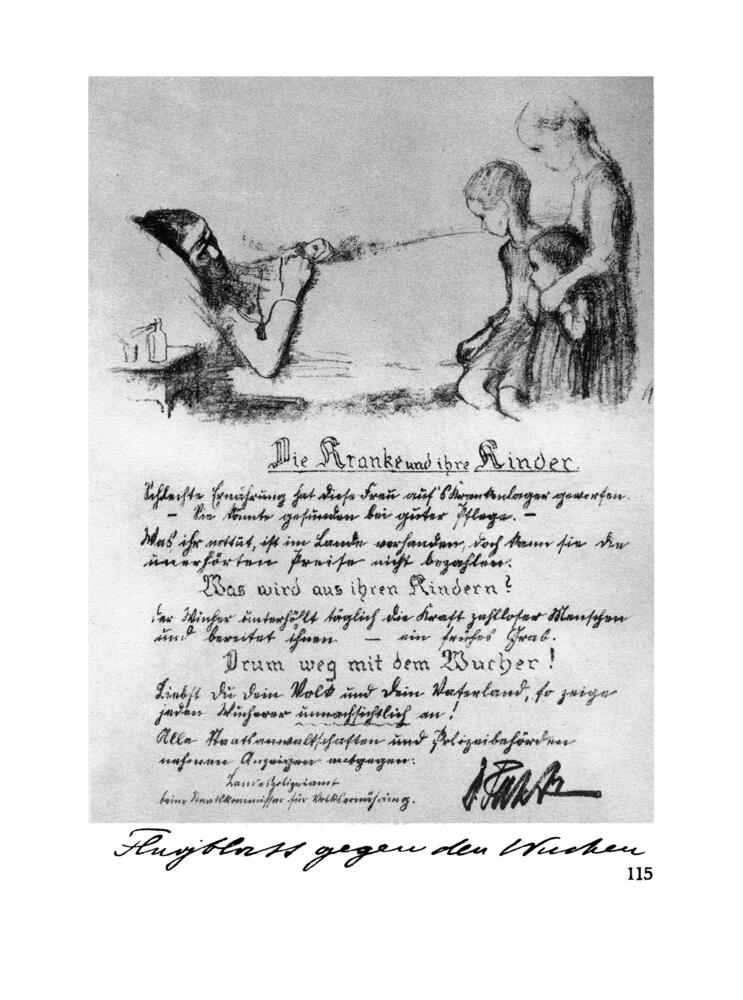 Die Kranke und ihre Kinder.
Schlechte Ernährung hat diese Frau auf's Krankenlager geworfen.
— Sie könnte gesunden bei guter Pflege. —
Was ihr nottut, ist im Lande vorhanden, doch kann sie die
unerhörten Preise nicht bezahlen.
Was wird aus ihren Kindern?
Der Wucher unterhöhlt täglich die Kraft zahlloser Menschen
und bereitet ihnen — ein frühes Grab.
Drum weg mit dem Wucher!
Liebst Du dein Volk und dein Vaterland, so zeige
jeden Wucherer unnachsichtlich an!
Alle Staatsanwaltschaften und Polizeibehörden
nehmen Anzeigen entgegen.
Landespolizeiamt
beim Staatskommissar für Volksernährung.
Flugblatt gegen den Wucher
115